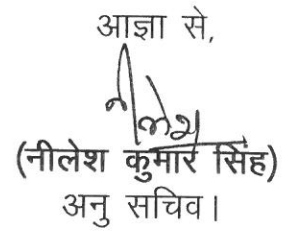 आज्ञा से,
नीलेश
(नीलेश कुमार सिंह)
अनु सचिव।